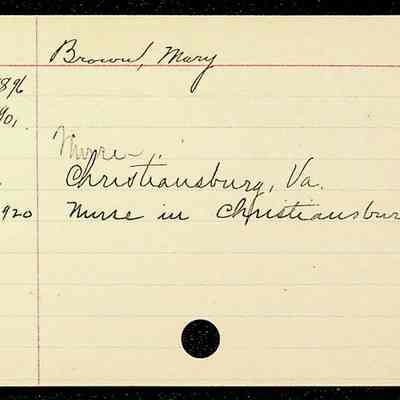 Brown, Mary
896
901.
Nurse.
Christiansburg, Va.
920 Nurse in Christiansbur